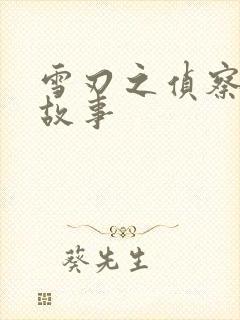 雪刃之偵察
故事
葵先生